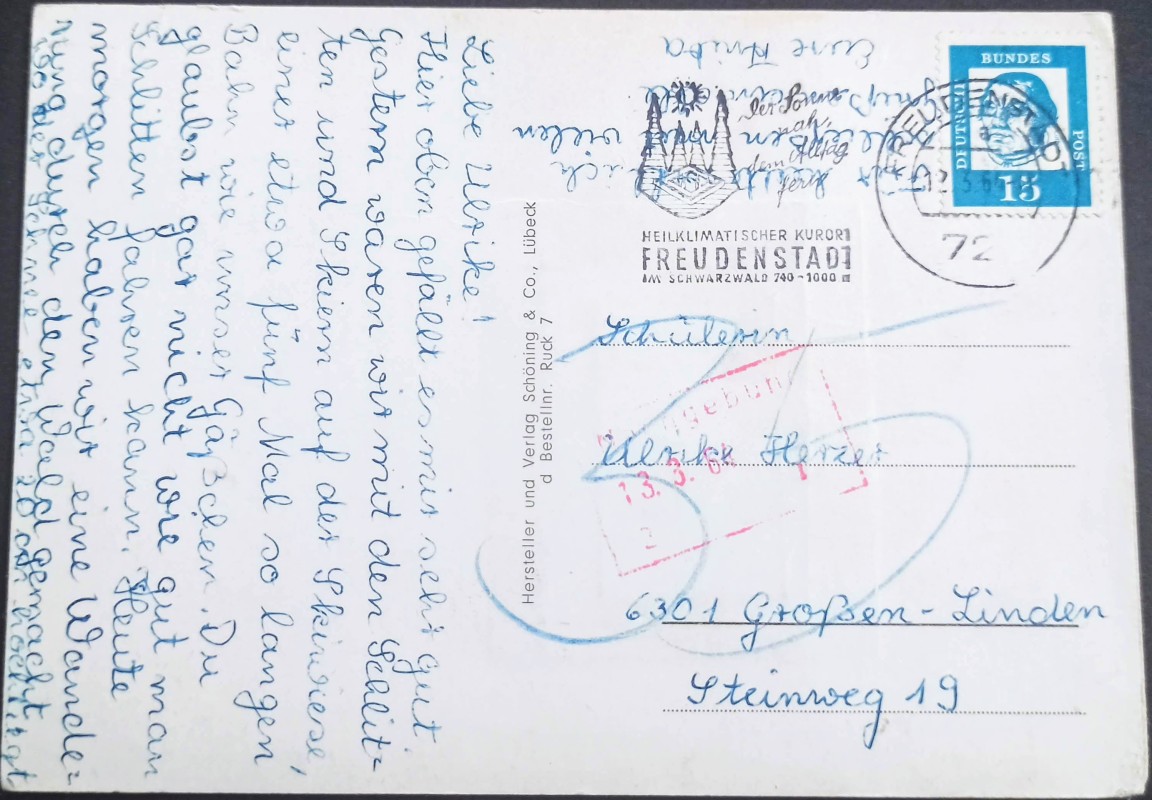 Liebe Ulrike!
Hier oben gefällt es mir sehr gut.
Gestern waren wir mit den Schlit-
ten und Skiern auf der Skiwiese,
einer etwa fünf Mal so langen
Bahn wie unser Gäßchen. Du
glaubst gar nicht wie gut man
Schlitten fahren kann. Heute
morgen haben wir eine Wande-
rung durch den Wald gemacht,
wo der Schnee etwa 20 cm hoch liegt
Für heute
grüßen mit vielen
Eure Anita
DEUTSCHE
BUNDES
POST
15
FREUDENSTADT
12.3.64
72
der Sonne
nah,
dem Alltag
fern
HEILKLIMATISCHER KURORT
FREUDENSTADT
IM SCHWARZWALD 740-1000 m
Hersteller und Verlag Schöning & Co., Lübeck
d Bestellnr. Ruck 7
Schülerin
Ulrike Herzer
13.3.64
6301 Großen-Linden
Steinweg 19